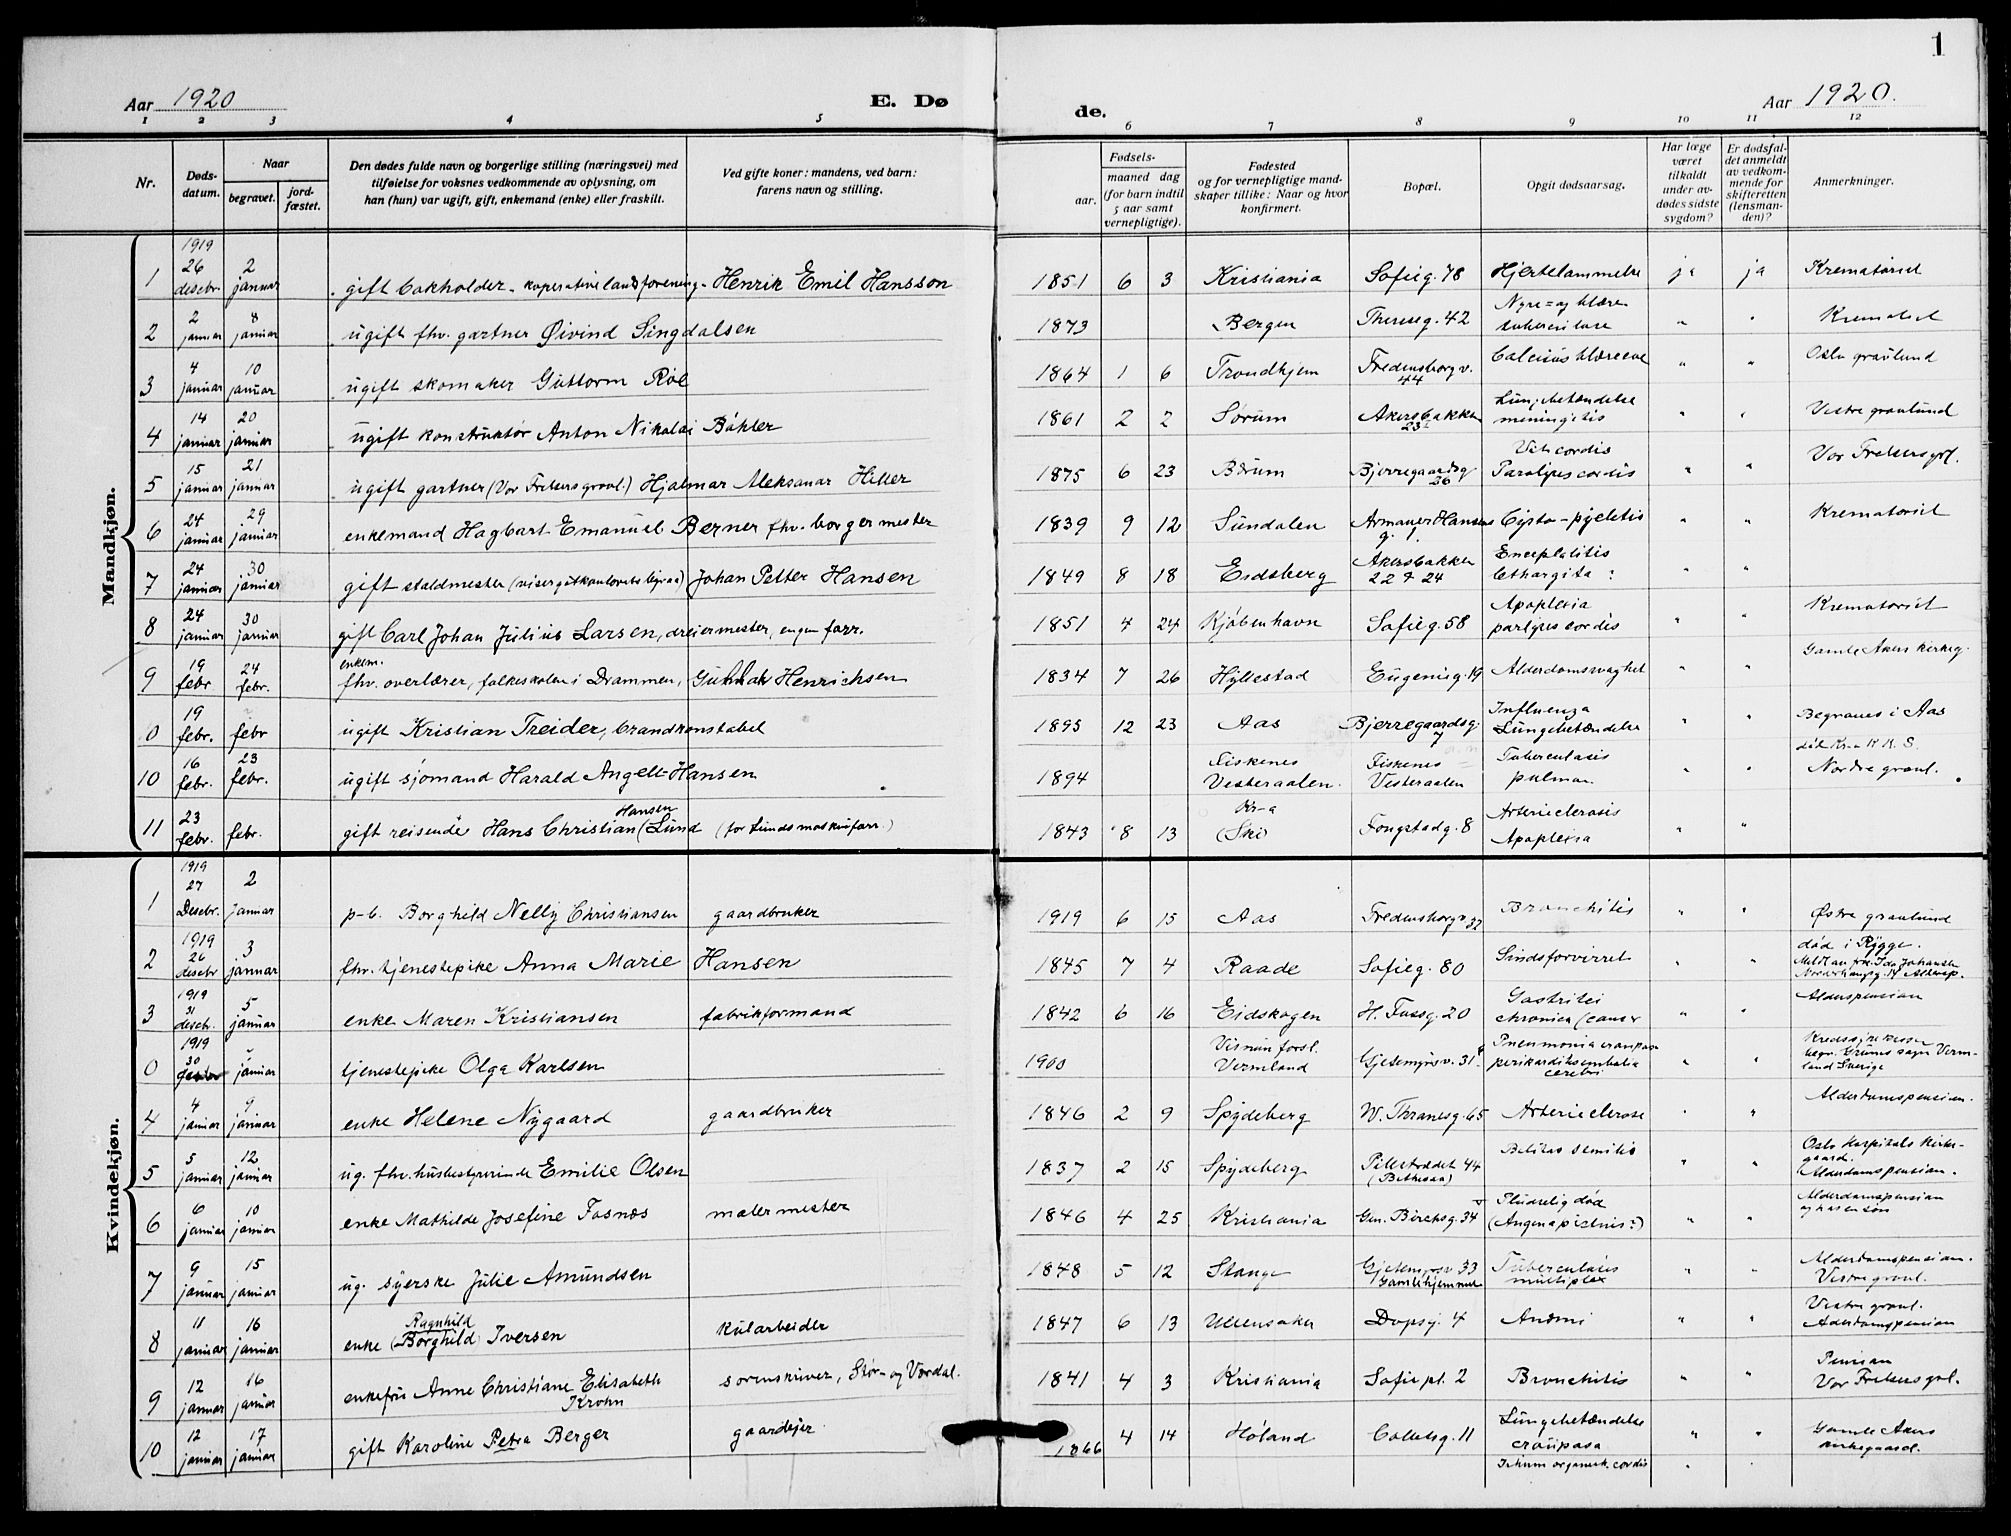 1
Aar 1920
E. Dø
de.
Aar 1920.
1 2 3 4 5 6 7 8 9 10 11 12
Nr.
Døds-
datum.
Naar
begravet.
jord-
fæstet.
Den dødes fulde navn og borgerlige stilling (næringsvei) med
tilføielse for voksnes vedkommende av oplysning, om
han (hun) var ugift, gift, enkemand (enke) eller fraskilt.
Ved gifte koner: mandens, ved barn:
farens navn og stilling.
Fødsels-
aar.
maaned dag
(for barn indtil
5 aar samt
vernepligtige).
Fødested
og for vernepligtige mand-
skaper tillike: Naar og hvor
konfirmert.
Bopæl.
Opgit dødsaarsag.
Har læge
været
tilkaldt
under av-
dødes sidste
sygdom?
Er dødsfal-
det anmeldt
av vedkom-
mende for
skifteretten
(lensman-
den)?
Anmerkninger.
Mandkjøn.
1 1919 26 desebr. 2 januar gift bokholder - Henrik Emil Hansson 1851 6 3 Kristiania Sofieg. 78 Hjertelammelse ja ja Krematoriet
2 2 januar 8 januar ugift fhv. gartner Øivind Singdalsen 1873 Bergen Theresg. 42 Nyre= og blære tuberculose " " Krematoriet
3 4 januar 10 januar ugift skomaker Guttorm Røe 1864 1 6 Trondhjem Fredensborgv. 44 " " Oslo gravlund
4 14 januar 20 januar ugift konstruktør Anton Nikolai Bøhler 1861 2 2 Sørum Akersbakken 23 Lungebetændelse meningitis " " Vestre gravlund
5 15 januar 21 januar ugift gartner (Vor Frelsers gravl.) Hjalmar Aleksanar Hiller 1875 6 23 Bærum Bjerregaardsg 26 Vit. cordis Paralyses cordis " " Vor Frelsers grl.
6 24 januar 29 januar enkemand Hagbart Emanuel Berner fhv. borgermester 1839 9 12 Sundalen Armauer Hansens g. 1 Cysto-pyeletis " " Krematoriet
7 24 januar 30 januar gift staldmester Johan Petter Hansen 1849 8 18 Eidsberg Akersbakken 22 & 24 Encephalitis lethargita ? " "
8 24 januar 30 januar gift Carl Johan Julius Larsen, dreiermester, egen forr. 1851 4 24 Kjøbenhavn Sofieg. 58 Apoplexia paralyses cordis " " Krematoriet
9 19 febr 24 febr. enkem. fhv. overlærer, folkeskolen i Drammen, Henrichsen 1834 7 26 Hyllestad Eugeniesg. 19 Alderdomssvaghet " " Gamle Akers kirkeg.
0 19 febr. febr ugift Kristian Treider, brandkonstabel 1895 12 23 Aas Bjerregaardsg. 7 Influenza Lungebetændelse " " Begraves i Aas
10 16 febr. 23 febr. ugift sjømand Harald Angelt-Hansen 1894 Fiskenes Vesteraalen. Fiskenes Vesteraalen Tuberculosis pulmon. " " død Kr-a K.K.S. Nordre gravl.
11 23 febr. febr. gift reisende Hans Christian Hansen (Lund (for Lunds maskinforr.) 1843 8 13 Kr-a (Ski) Fougstadg. 8 Arterieclerosis Apoplexia " "
Kvindekjøn.
1 1919 27 Desebr. 2 januar p-b. Borghild Nelly Christiansen gaardbruker 1919 6 15 Aas Fredensborgv. 32 Bronchitis " " Østre gravlund
2 1919 26 desebr 3 januar fhv. tjenestepike Anna Marie Hansen 1845 7 4 Raade Sofieg. 80 Sindsforvirret " " død i Rygge. Meldt av frk. Ida Johansen
3 1919 31 desebr. 5 januar enke Maren Kristiansen fabrikformand 1842 6 16 Eidskogen H. Fossg. 20 Gastritei chronica (cancer " " Alderspension
0 1919 30 januar tjenestepike Olga Karlsen 1900 Visnum forsl. Vermland Gjetemyrsv. 31 Pneumonia croupøsa cerebri " " Grums sogn Verm- land Sverige
4 4 januar 9 januar enke Helene Nygaard gaardbruker 1846 2 9 Spydeberg W. Thranesg. 65 Arterieclerose " " Alderdomspension.
5 5 januar 12 januar ug. fhv. husbestyrerinde Emilie Olsen 1837 2 15 Spydeberg Pilestrædet 44 (Bethesda) senilis " " Oslo hospitals kirke- gaard. Alderdomspension.
6 6 januar 10 januar enke Mathilde Josefine Fosnæs malermester 1846 4 25 Kristiania Gen. Birchsg. 34 Pludselig død (Angena pictoris?) " " Alderdomspension og hos en søn
7 9 januar 15 januar ug. syerske Julie Amundsen 1848 5 12 Stange Gjetemyrsv 33 Gamlehjemmet Tuberculosis multiplex " " Alderdomspension. Vestre gravl.
8 11 januar 16 januar enke Ragnhild (Borghild) Iversen kularbeider 1847 6 13 Ullensaker Dopsg. 4 Anæmi " " Vestre gravl. Alderdomspension
9 12 januar 16 januar enkefru Anne Christiane Elisabeth Krohn sorenskriver, Stør- og Værdal. 1841 4 3 Kristiania Sofie pl. 2 Bronchitis " " Pension Vor Frelsers grl.
10 12 januar 17 januar gift Karoline Petra Berger gaardejer 1866 4 14 Høland Colletsg. 11 Lungebetændelse croupøsa organisk. cordis " " Gamle Akers kirkegaard.